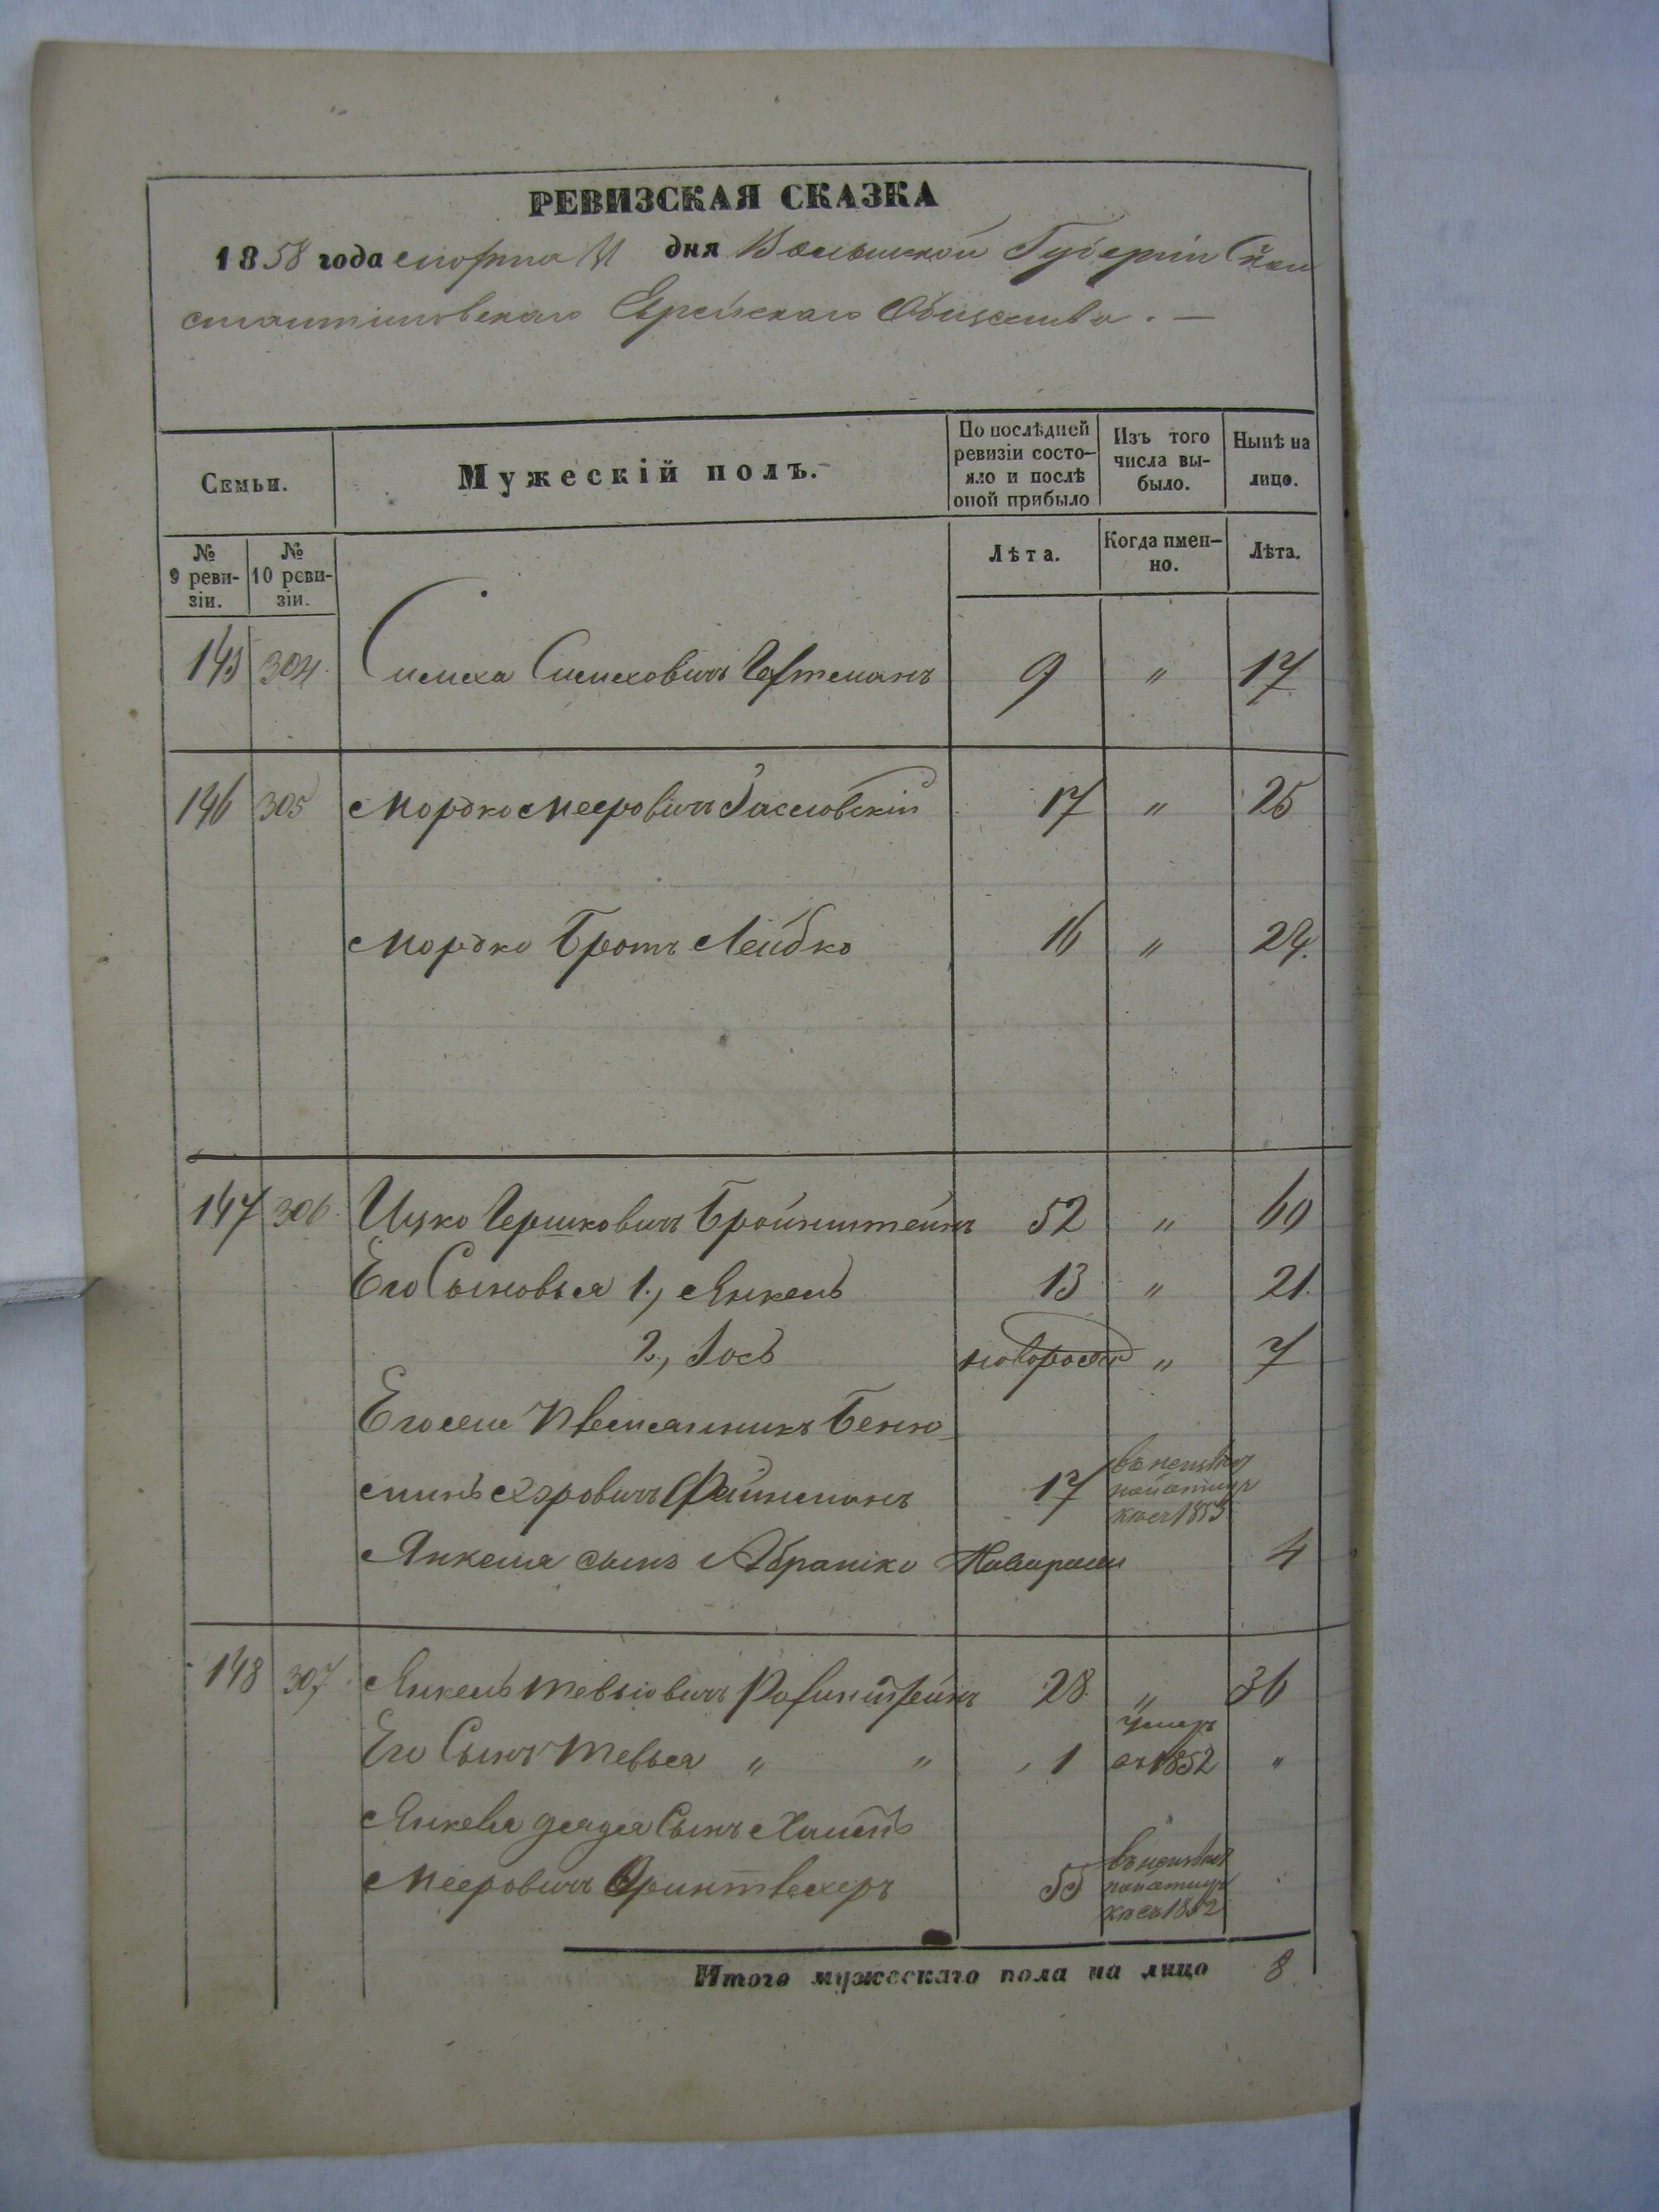 РЕВИЗСКАЯ СКАЗКА
1858 года Марта 11 дня Волынской Губерніи Ст. Кон
стантиновскаго Еврейскаго Общества. —
Семьи.
Мужескій полъ.
По послѣдней ревизіи состо-
яло и послѣ оной прибыло
Изъ того числа вы-
было.
Нынѣ на лицо.
№ 9 реви-
зіи.
№ 10 реви-
зіи.
Лѣта.
Когда имен-
но.
Лѣта.
145 304 Симха Симховичъ 9 " 17
146 305 Мордко Мееровичъ Заславскій 17 " 25
Мордко Братъ Лейбко 16 " 24.
147 306 Ицко Гершковичъ Бройнштейнъ 52 " 60
Его Сыновья 1., Янкель 13 " 21.
2., Іось новорожд " 7
Его же Племянникъ Беню
минъ Файнманъ 17 въ неизвѣст
ной отлуч
кѣ съ 1853
Янкеля сынъ Абрамко Новорожд 4
148 307 Янкель Тевьіовичъ 28 " 36
Его Сынъ Тевья " " 1 умеръ въ 1852 "
Янкеля дядя Сынъ Хаимъ
Мееровичъ 55 въ неизвѣст
ной отлуч
кѣ съ 1852
Итого мужескаго пола на лицо 8